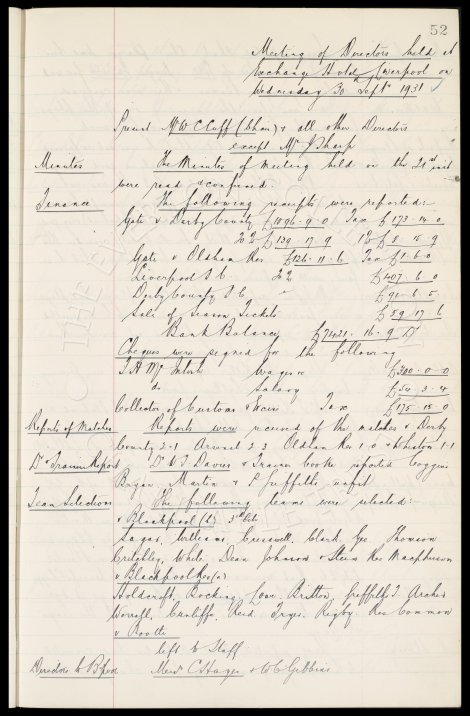 52
Meeting of Directors held at
Exchange Hotel Liverpool on
Wednesday 30 Septr 1931
Present Mr W C Cuff (Chair) & all other Directors
except Mr J Sharp
Minutes The Minutes of meeting held on the 21st inst
were read & confirmed.
Finance The following receipts were reported:
Gate v Derby County £1896. 9. 0 Tax £173. 14. 0
20% £139. 17. 9 1% £8. 15. 9
Gate v Oldham Res £126. 11. 6 Tax £1. 6. 0
Liverpool F.C. 20% £407. 6. 0
Derby County F.C. " £91. 6. 5
Sale of Season Tickets £59. 17. 6
Bank Balance £7421. 16. 9
Cheques were signed for the following
T. H. McIntosh Wages £300. 0. 0
do Salary £54. 3. 4
Collector of Customs & Excise Tax £175. 15. 0
Reports of Matches Reports were received of the matches v Derby
County 2-1 Arsenal 2-3 Oldham Res 1-0 & Whiston 1-1
Dr & Trainers Report Dr D. J. Davies & Trainer Cooke reported Coggins
Bryan Martin & P. Griffiths unfit
Team Selections The following teams were selected:
v Blackpool (h) 3rd Octr
Sagar, Williams, Cresswell, Clark, Gee, Thomson
Critchley, White, Dean Johnson & Stein Res Macpherson
v Blackpool Res (a)
Holdcroft, Bocking, Lowe, Britton, Griffiths T. Archer
Worrall, Cunliffe, Reid, Fryer, Rigby. Res Common
v Bootle
left to Staff
Directors to B'pool Messrs C. S. & W. C. Gibbins